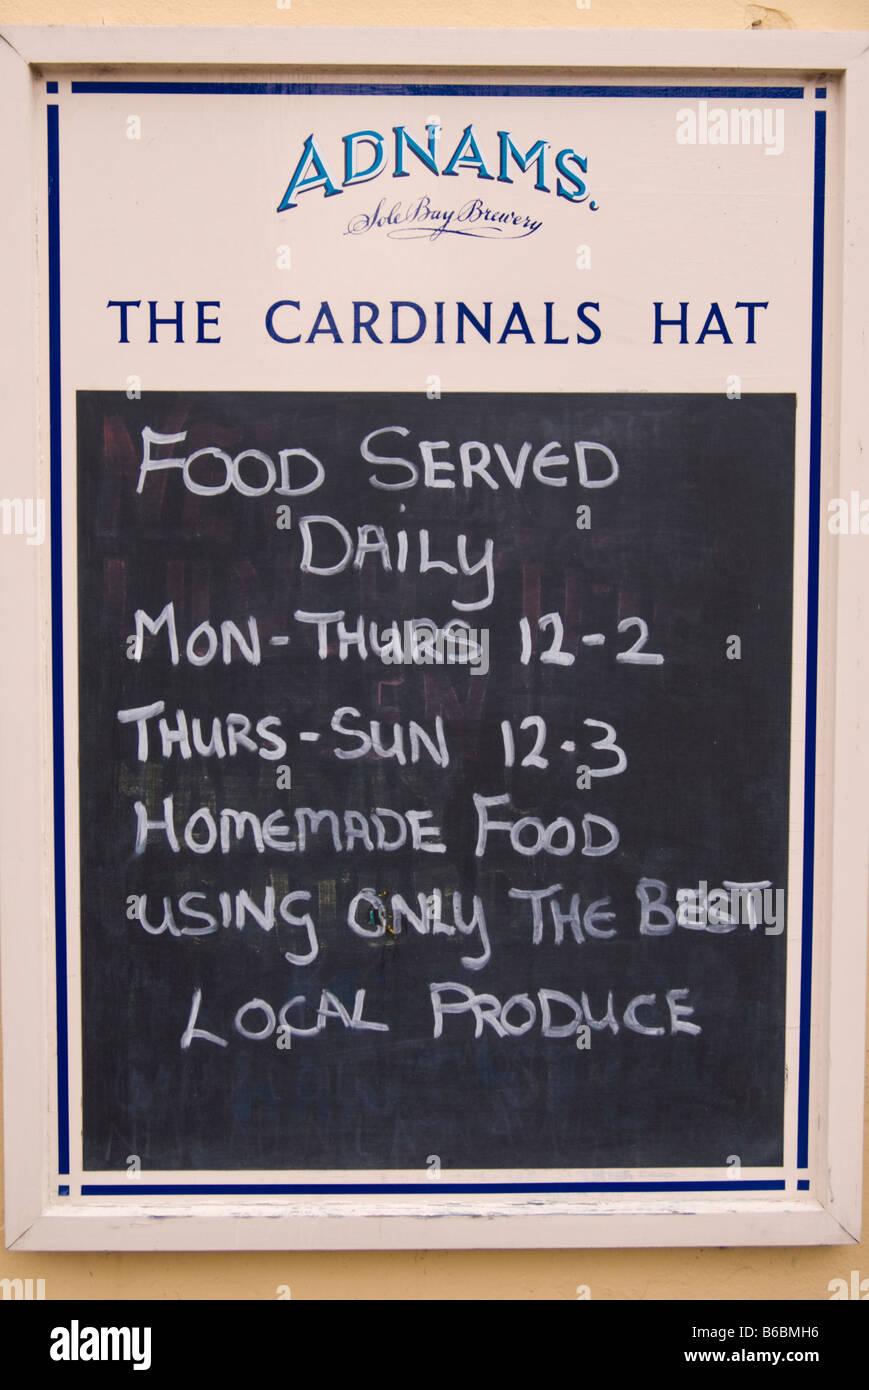 ADNAMS.
Sole Bay Brewery
THE CARDINALS HAT
FOOD SERVED
DAILY
MON-THURS 12-2
THURS-SUN 12-3
HOMEMADE FOOD
USING ONLY THE BEST
LOCAL PRODUCE
alamy
Image ID: B6BMH6
www.alamy.com